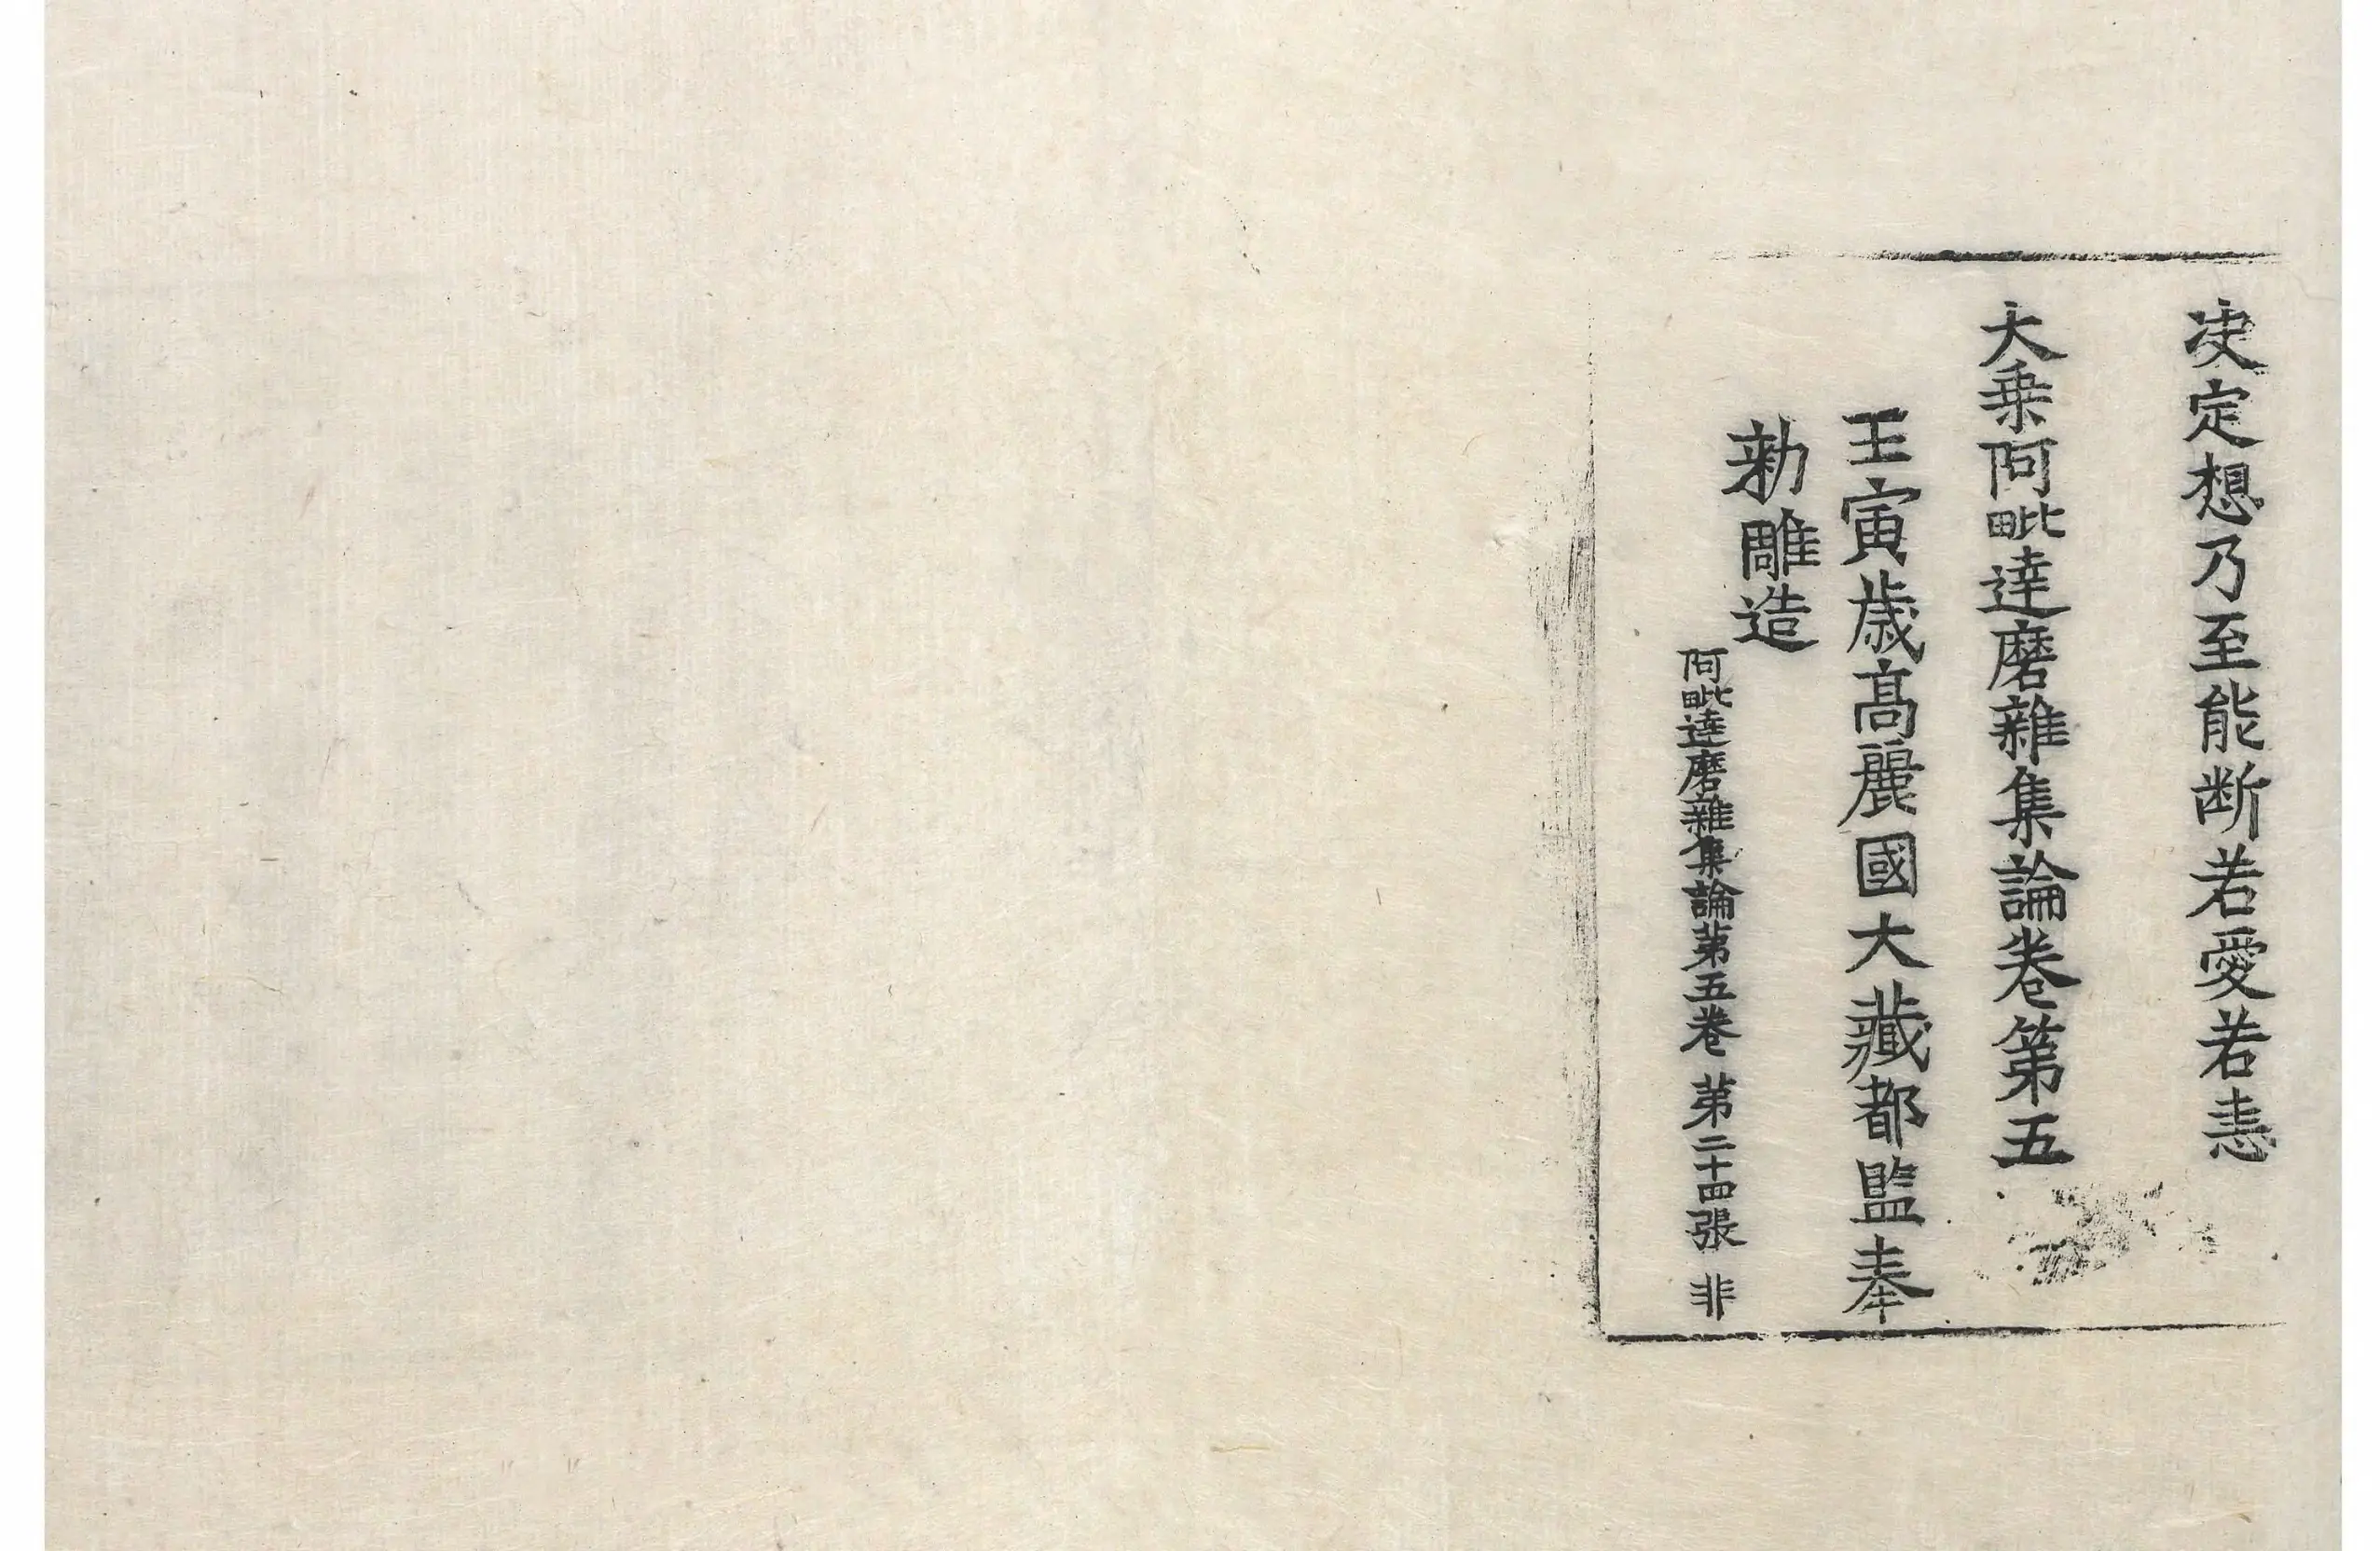 决定想乃至能断若愛若恚
大乗阿毗達磨雜集論卷第五
壬寅歲高麗國大藏都監奉
勑雕造
阿毗達磨雜集論苐五卷 苐二十四張 非